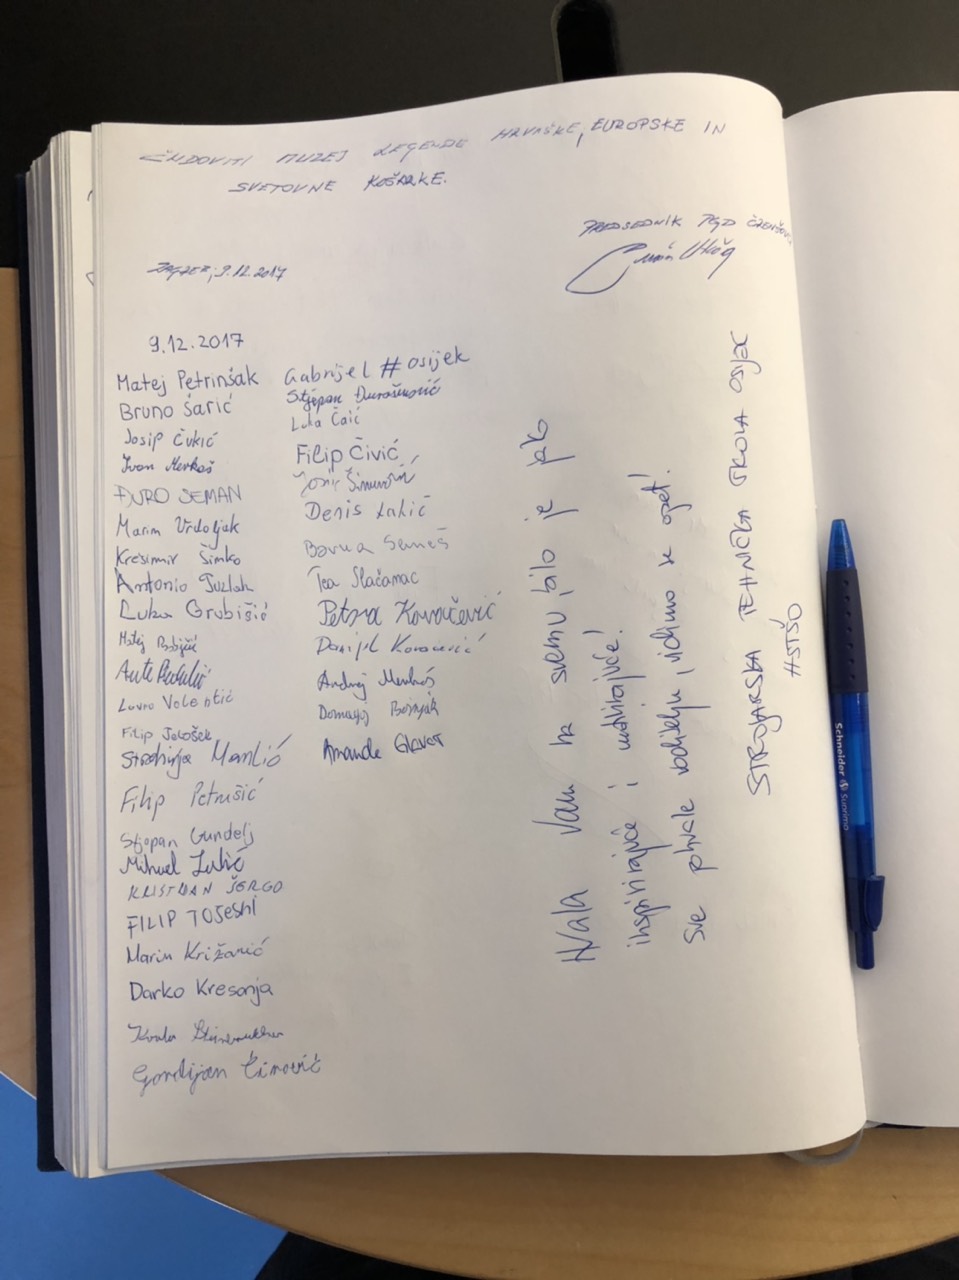 ČUDOVITI MUZEJ LEGENDE HRVAŠKE, EUROPSKE IN
SVETOVNE KOŠARKE.
PREDSEDNIK PGD
ZAGREB, 9.12.2017
9.12.2017
Matej Petrinšak
Bruno Šarić
Josip Čukić
Ivan Merkaš
ĐURO SEMAN
Marin Vrdoljak
Krešimir Šimko
Antonio Tuzlak
Luka Grubišić
Matej
Ante
Lovro Valentić
Filip Jelošek
Strahinja Manlić
Filip Petrušić
Stjepan Gundelj
Mihael Lukić
KRISTIJAN ŠERGO
FILIP TOJESHI
Marin Križanić
Darko Kresonja
Gordijan Činović
Gabrijel #osijek
Stjepan
Luka Čaić
Filip Čivić
Josip
Denis Lakić
Borna
Tea Slačanac
Petra Kovačević
Danijel Kovačević
Andrej Merkaš
Domagoj Bošnjak
Amanda Glavaš
Hvala Vam na svemu, bilo je jako
inspirirajuće i motivirajuće!
Sve pohvale voditelju, vidimo se opet!
STROJARSKA TEHNIČKA ŠKOLA OSIJEK
#STŠO
Schneider Suprimo